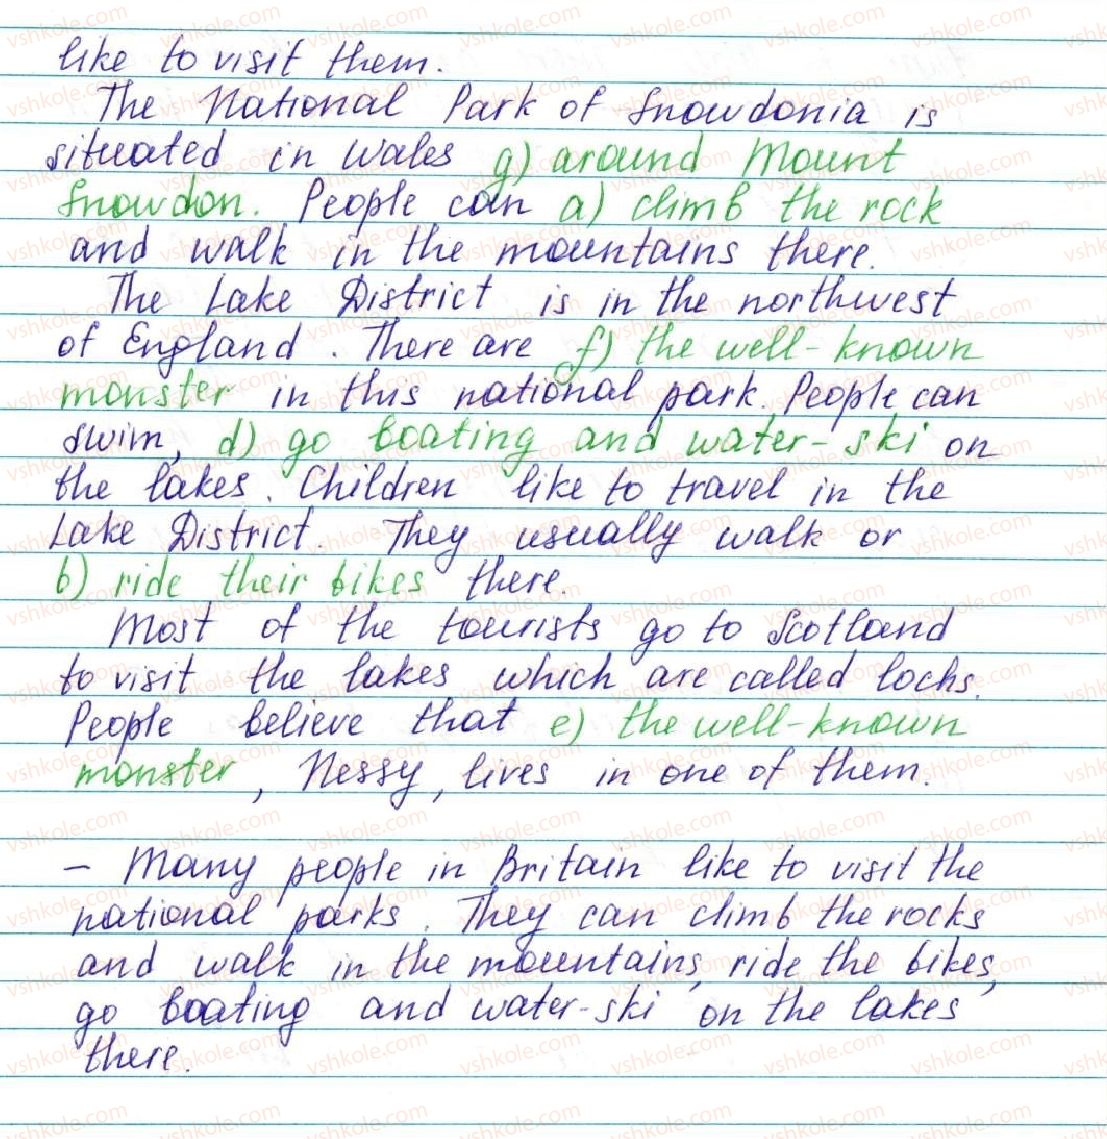 like to visit them.
The National Park of Snowdonia is
situated in Wales g) around Mount
Snowdon. People can a) climb the rock
and walk in the mountains there.
The Lake District is in the northwest
of England. There are f) the well-known
monster in this national park. People can
swim, d) go boating and water-ski on
the lakes. Children like to travel in the
Lake District. They usually walk or
b) ride their bikes there.
Most of the tourists go to Scotland
to visit the lakes which are called lochs.
People believe that e) the well-known
monster, Nessy, lives in one of them.
- Many people in Britain like to visit the
national parks. They can climb the rocks
and walk in the mountains, ride the bikes,
go boating and water-ski on the lakes
there.